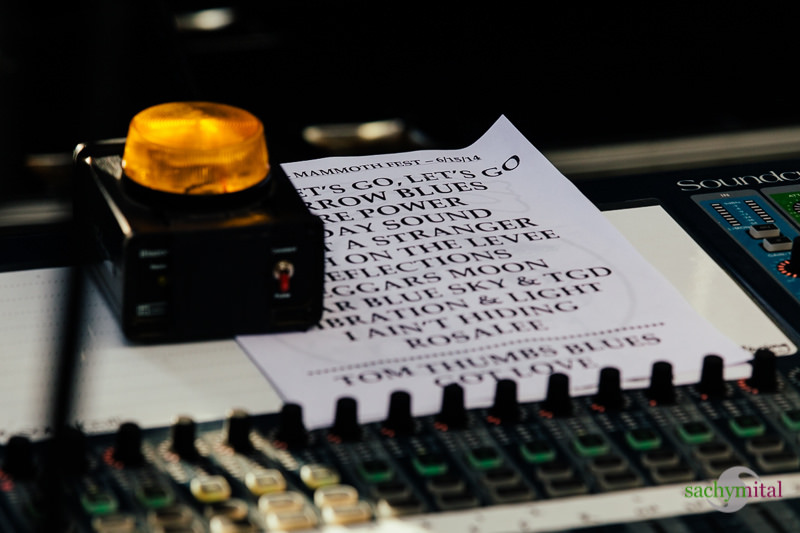 MAMMOTH FEST – 6/15/14
ET'S GO, LET'S GO
RROW BLUES
RE POWER
AY SOUND
A STRANGER
ON THE LEVEE
EFLECTIONS
GGARS MOON
R BLUE SKY & TGD
BRATION & LIGHT
I AIN'T HIDING
ROSALEE
TOM THUMBS BLUES
GOT LOVE
Soundcr
IN
sachymital